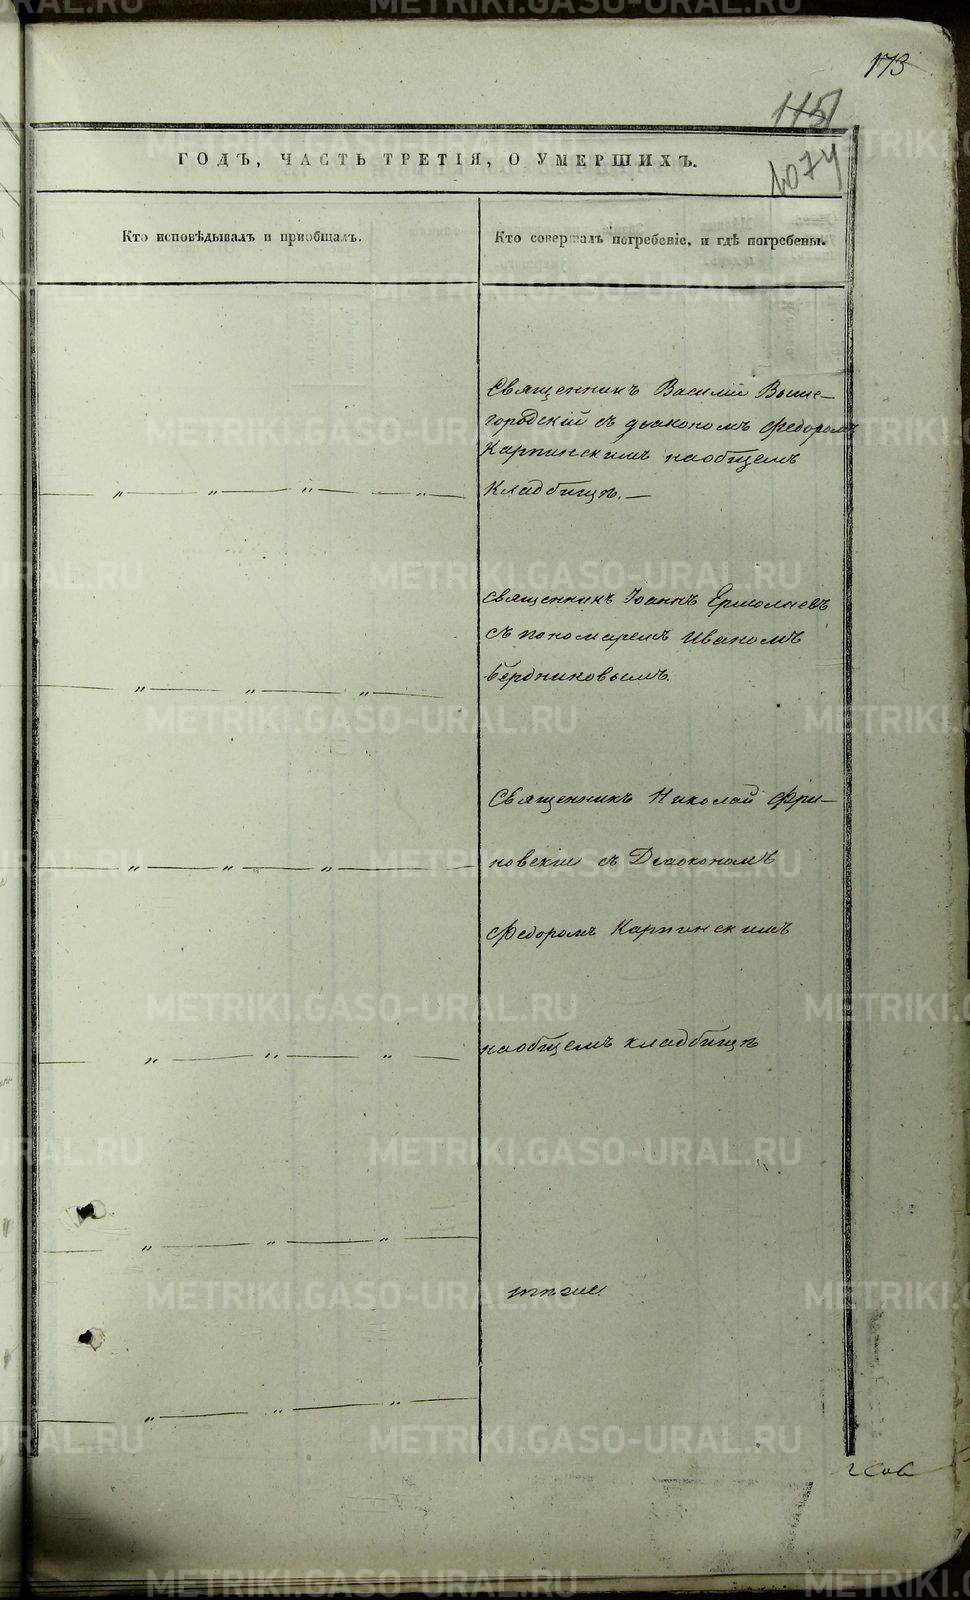 173
115
1074
ГОДЪ, ЧАСТЬ ТРЕТІЯ, О УМЕРШИХЪ.
Кто исповѣдывалъ и приобщалъ.
Кто совершалъ погребеніе, и гдѣ погребены.
Священникъ Василій Выше-
городскій съ діакономъ Федоромъ
Карпинскимъ наобщемъ
— „ — „ — „ — „ — кладбищѣ. —
священникъ Іоаннъ Ермолаевъ
съ пономаремъ Иваномъ
— „ — „ — „ — Бердниковымъ.
Священникъ Николай Фри-
— „ — „ — „ — новскій съ Діакономъ
Федоромъ Карпинскимъ
наобщемъ кладбищѣ
— „ — „ — „ —
— „ — „ — „ —
тѣже
— „ — „ — „ —
METRIKI.GASO-URAL.RU